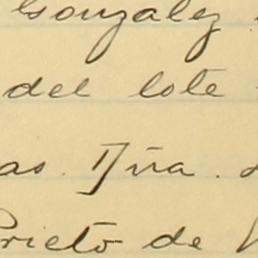 Gonzalez
del lote
as. Dña.
Prieto de